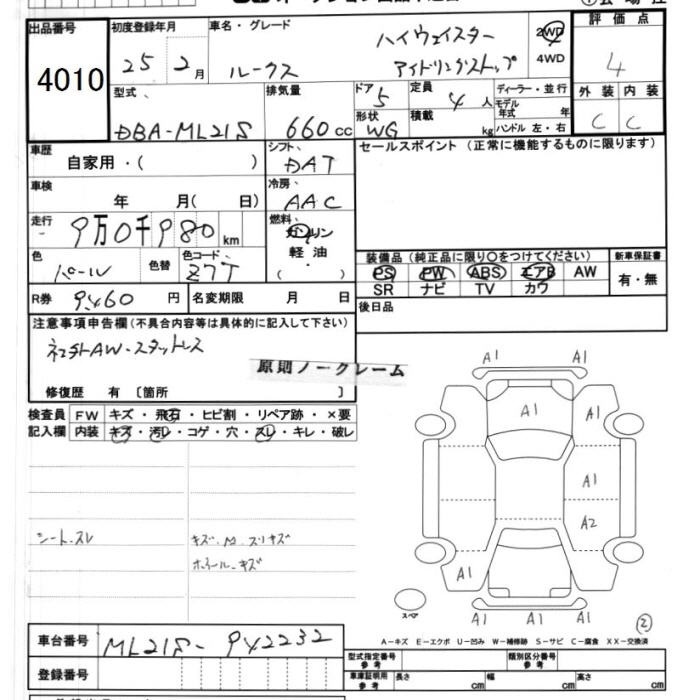 出品番号 初度登録年月 車名・グレード 評価点
4010 25 2月 ルークス ハイウェイスター アイドリングストップ 2WD 4WD 4
型式 排気量 ドア 定員 ディーラー・並行 外装 内装
DBA-ML21S 660cc 5 4人 モデル年式 年 C C
形状 WG 積載 kg ハンドル 左・右
車歴 自家用・( ) シフト DAT セールスポイント (正常に機能するものに限ります)
車検 年 月( 日) 冷房 AAC
走行 9万0千980km 燃料 ガソリン 軽油 ( )
色 パール 色替 色コード Z7T
装備品 (純正品に限り○をつけてください) 新車保証書
PS PW ABS エアB AW 有・無
SR ナビ TV カワ
R券 9460円 名変期限 月 日 後日品
注意事項申告欄(不具合内容等は具体的に記入して下さい)
社外AW・スタッドレス
原則ノークレーム
修復歴 有 〔箇所 〕
検査員 FW キズ・飛石・ヒビ割・リペア跡・×要
記入欄 内装 キズ・汚レ・コゲ・穴・スレ・キレ・破レ
A1 A1
A1 A1
A1
A2
A1
A1 A1 A1
スペア
②
シート.スレ キズ.M.スリキズ
ホイール.キズ
A-キズ E-エクボ U-凹み W-補修跡 S-サビ C-腐食 XX-交換済
車台番号 ML21S-942232
型式指定番号 参考 類別区分番号 参考
登録番号 車庫証明用 参考 長さ cm 幅 cm 高さ cm